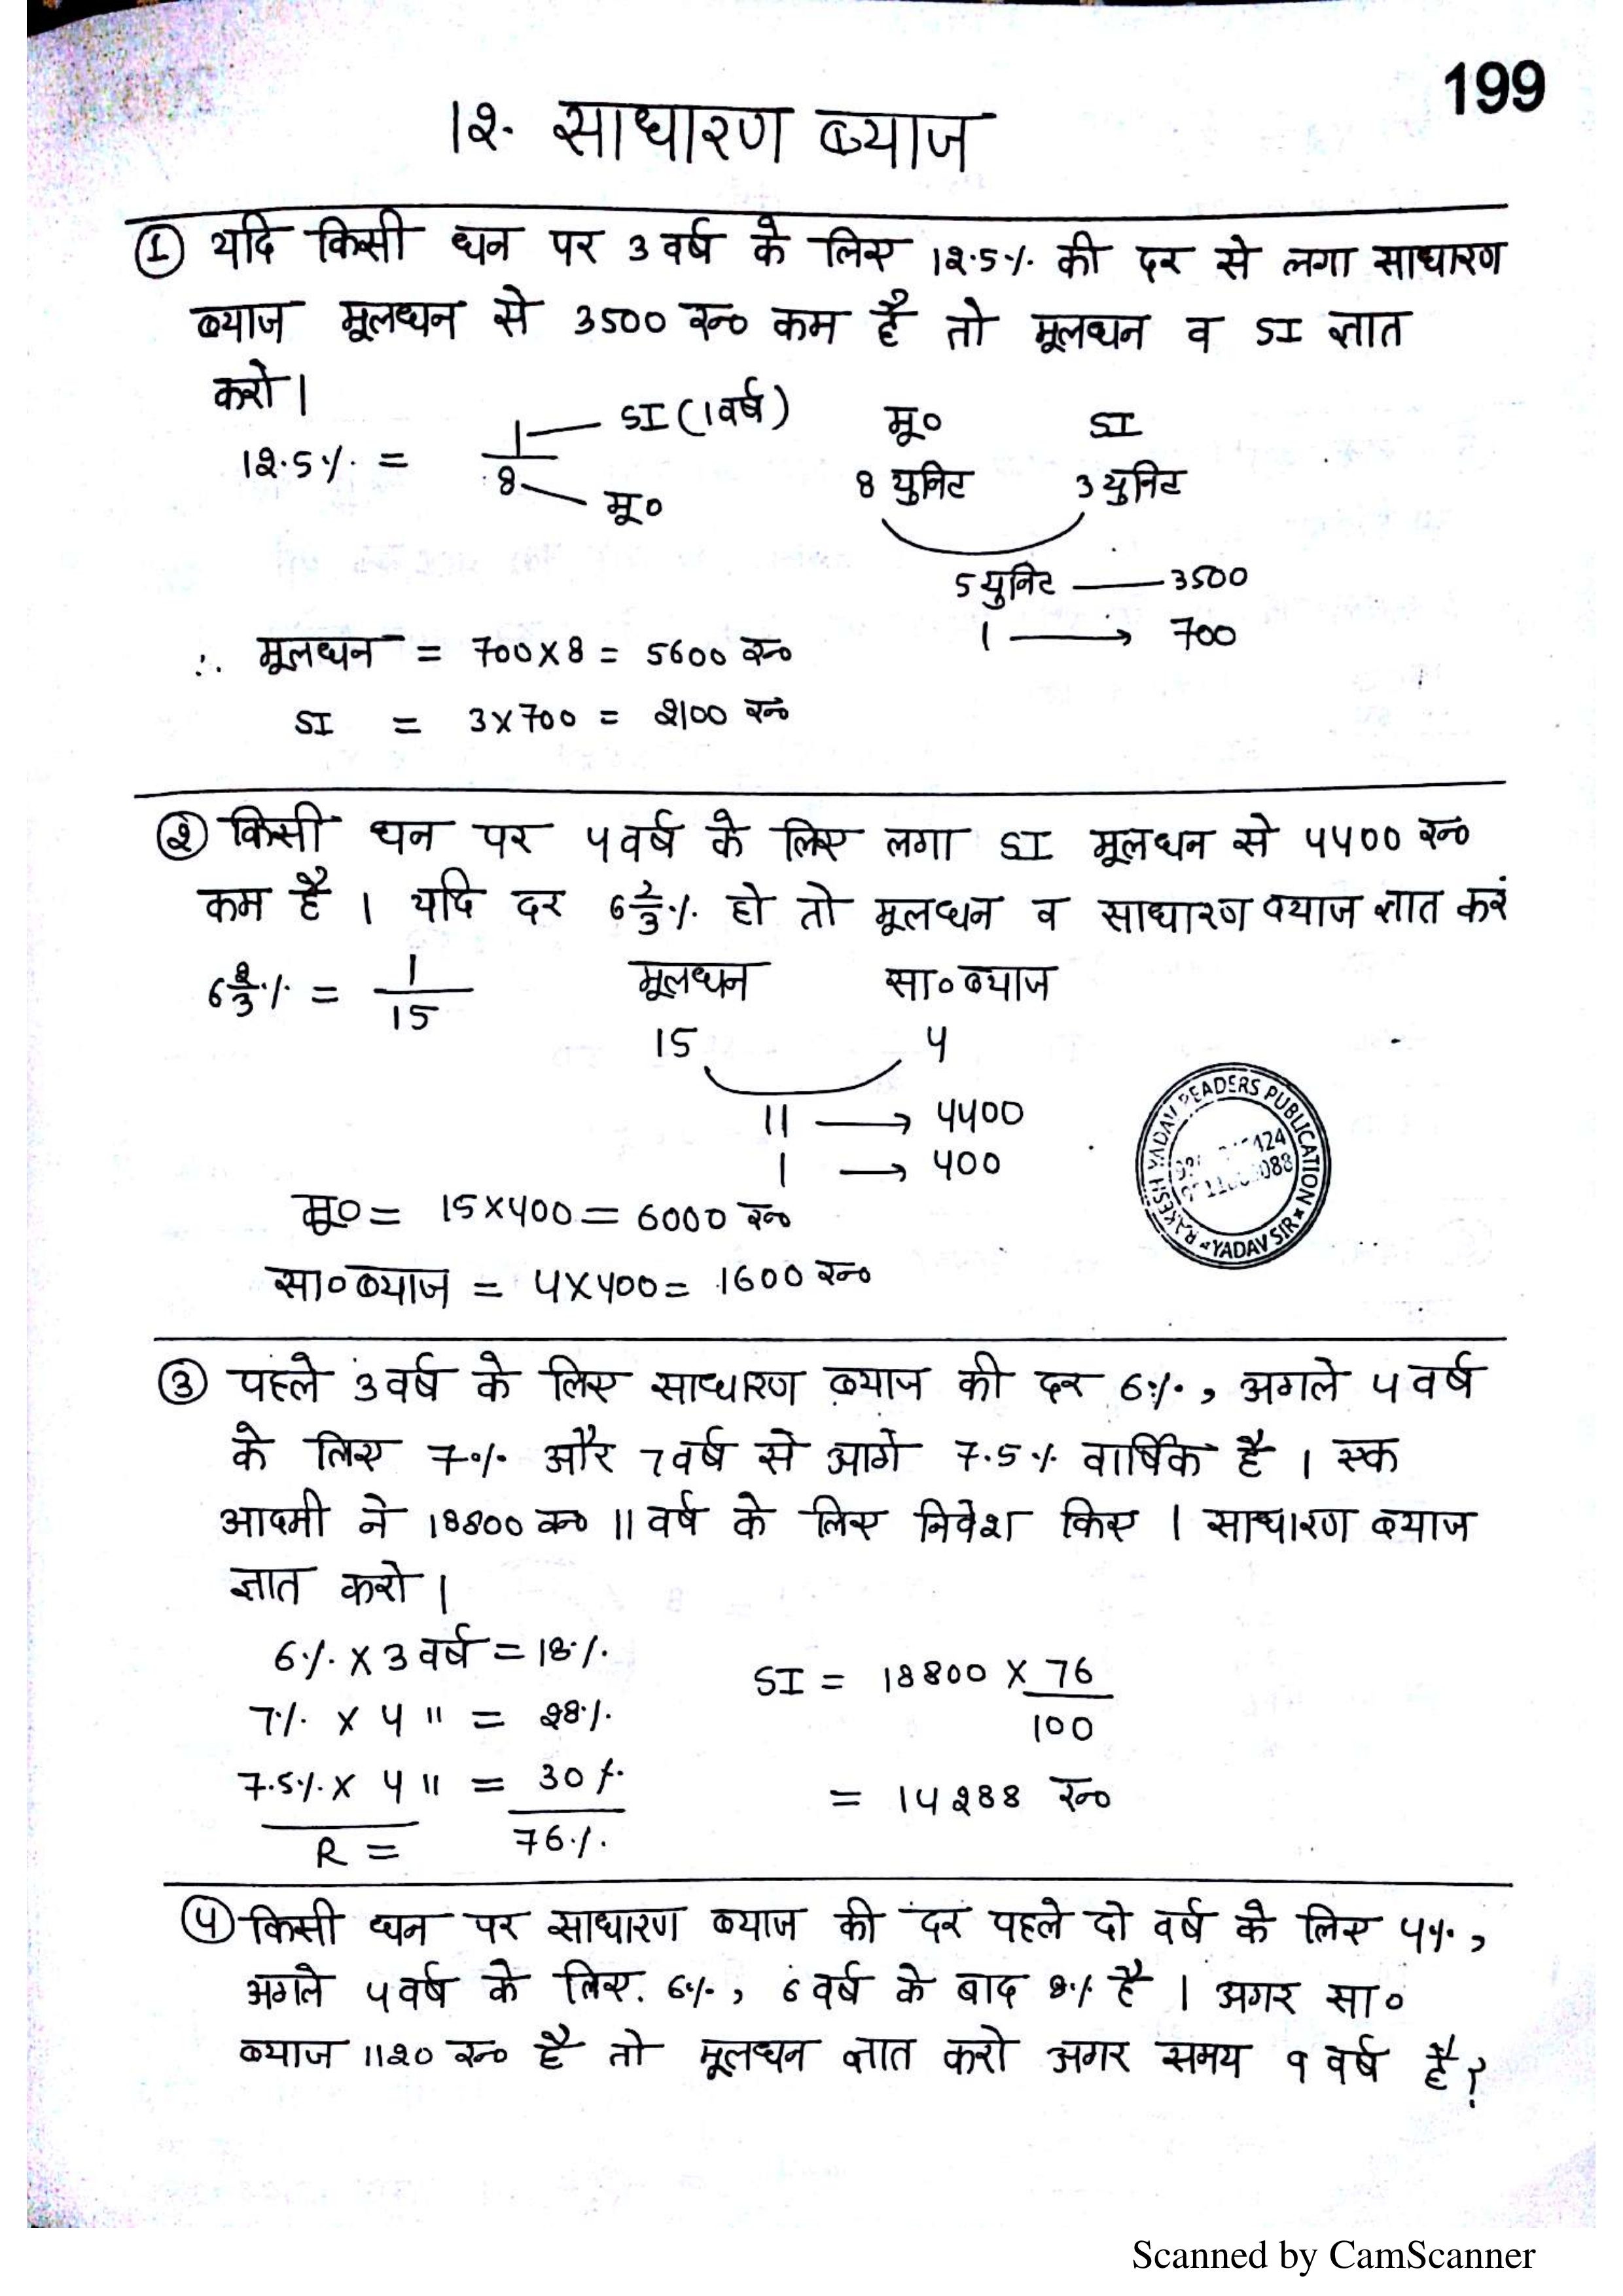 199
12. साधारण ब्याज
① यदि किसी धन पर 3 वर्ष के लिए 12.5% की दर से लगा साधारण
ब्याज मूलधन से 3500 रू० कम है तो मूलधन व SI ज्ञात
करो।
12.5% = 1/8
SI (1वर्ष)
मू०
मू० SI
8 युनिट 3 युनिट
5 युनिट — 3500
1 → 700
∴ मूलधन = 700 X 8 = 5600 रू०
SI = 3 X 700 = 2100 रू०
② किसी धन पर 4 वर्ष के लिए लगा SI मूलधन से 4400 रू०
कम है । यदि दर 6 2/3 % हो तो मूलधन व साधारण ब्याज ज्ञात करें
6 2/3 % = 1/15
मूलधन सा० ब्याज
15 4
11 → 4400
1 → 400
मू० = 15 X 400 = 6000 रू०
सा० ब्याज = 4 X 400 = 1600 रू०
RAKESH YADAV READERS PUBLICATION
YADAV SIR
③ पहले 3 वर्ष के लिए साधारण ब्याज की दर 6%, अगले 4 वर्ष
के लिए 7% और 7 वर्ष से आगे 7.5% वार्षिक है । एक
आदमी ने 18800 रू० 11 वर्ष के लिए निवेश किए । साधारण ब्याज
ज्ञात करो ।
6% X 3 वर्ष = 18%
7% X 4 " = 28%
7.5% X 4 " = 30%
R = 76%
SI = 18800 X 76/100
= 14288 रू०
④ किसी धन पर साधारण ब्याज की दर पहले दो वर्ष के लिए 4%,
अगले 4 वर्ष के लिए 6%, 6 वर्ष के बाद 8% है । अगर सा०
ब्याज 1120 रू० है तो मूलधन ज्ञात करो अगर समय 9 वर्ष है?
Scanned by CamScanner